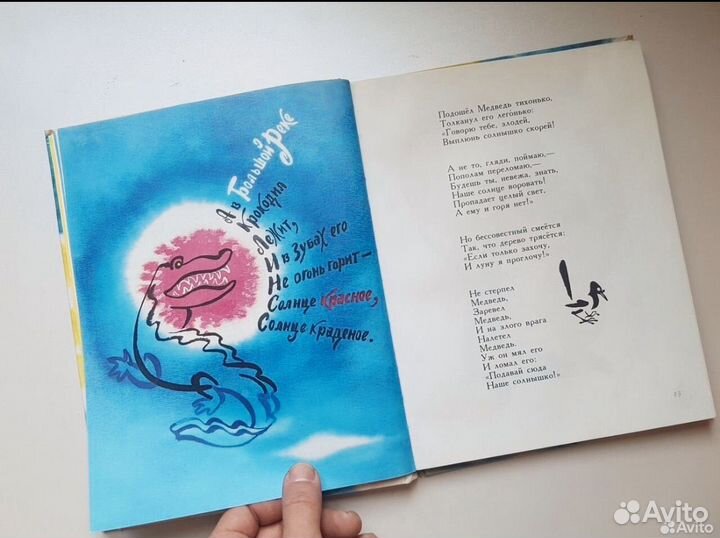 А в Большой Реке
Крокодил
Лежит,
И в зубах его
Не огонь горит —
Солнце красное,
Солнце краденое.
Подошёл Медведь тихонько,
Толканул его легонько:
«Говорю тебе, злодей,
Выплюнь солнышко скорей!
А не то, гляди, поймаю,—
Пополам переломаю,—
Будешь ты, невежа, знать,
Наше солнце воровать!
Пропадает целый свет,
А ему и горя нет!»
Но бессовестный смеётся
Так, что дерево трясётся:
«Если только захочу,
И луну я проглочу!»
Не стерпел
Медведь,
Заревел
Медведь,
И на злого врага
Налетел
Медведь.
Уж он мял его
И ломал его:
«Подавай сюда
Наше солнышко!»
Avito
Avito